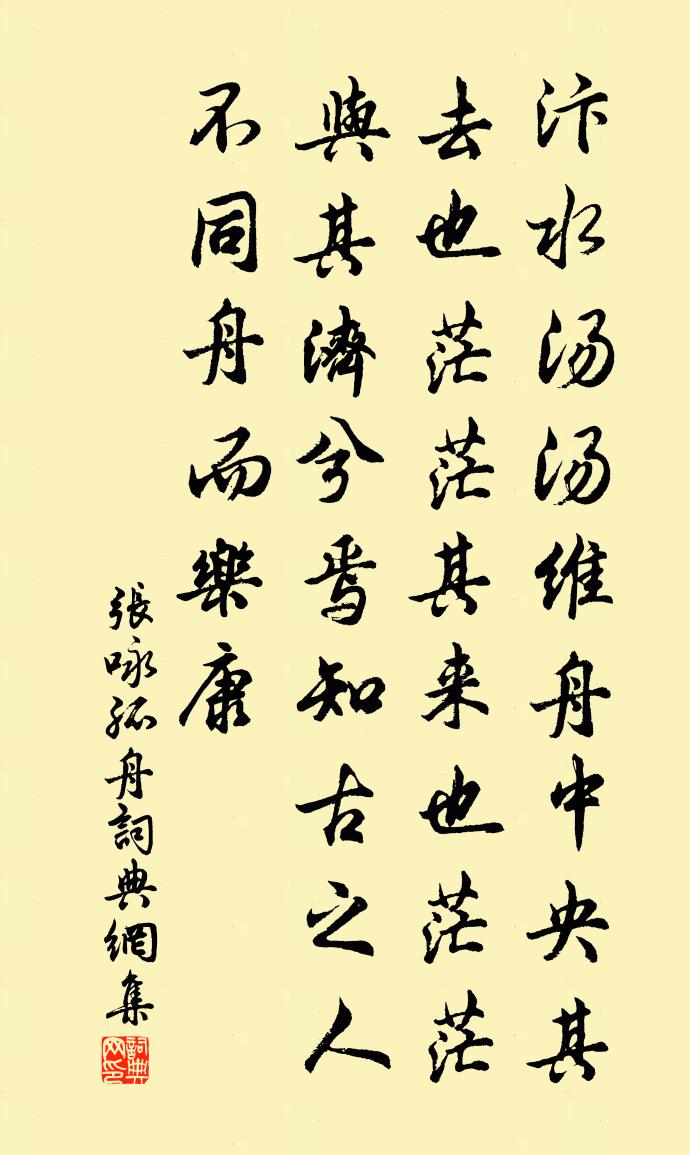 汴水汤汤維舟中央其
去也茫茫其来也茫茫
與其濟兮焉知古之人
不同舟而樂康
張咏孤舟詞典網集
詞典网印